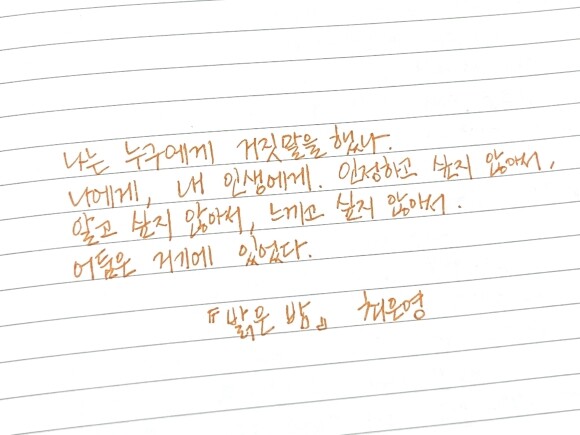 나는 누구에게 거짓말을 했나.
나에게, 내 인생에게. 인정하고 싶지 않아서,
알고 싶지 않아서, 느끼고 싶지 않아서.
어둠은 거기에 있었다.
『밝은 밤』 최은영